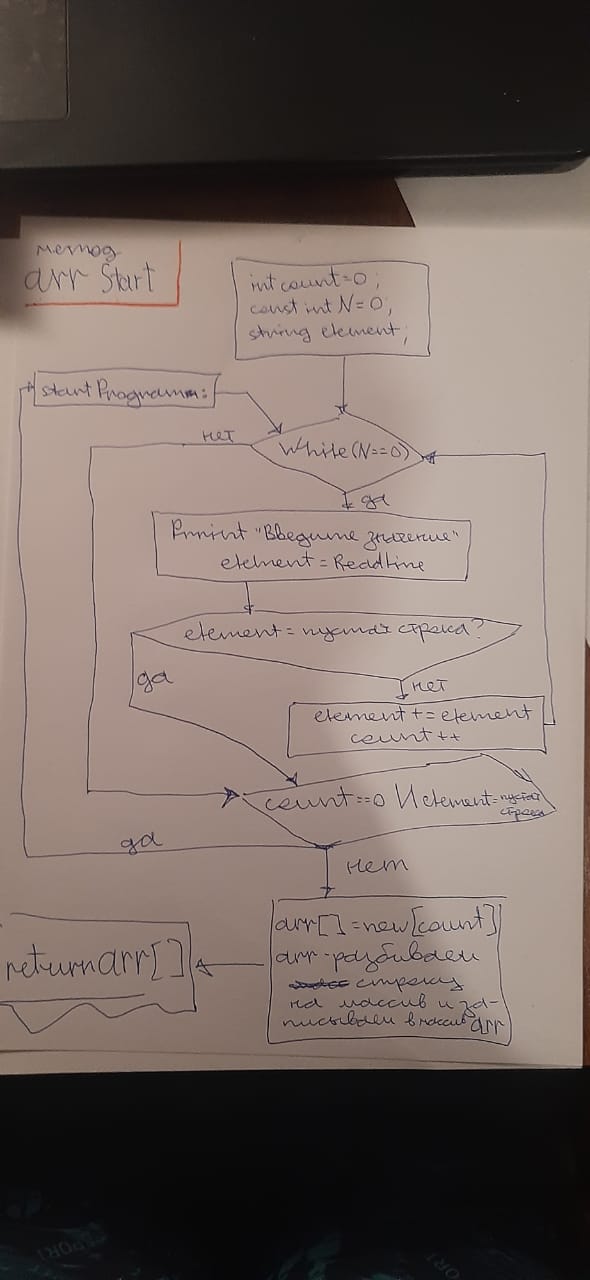 метод
arr Start
int count=0;
const int N=0;
string element;
start Programm:
нет
While(N==0)
да
Print "Введите значение"
element = Readline
element = пустая строка?
да
нет
element += element
count++
count==0 И element = пустая
строка
да
нет
arr[] = new[count]
arr - разбиваем
строку
на массив и за-
писываем в массив arr
return arr[]